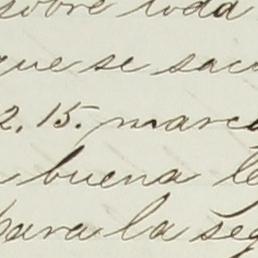 sobre toda
que se sac
2. 15. marc
buena le
para la seg